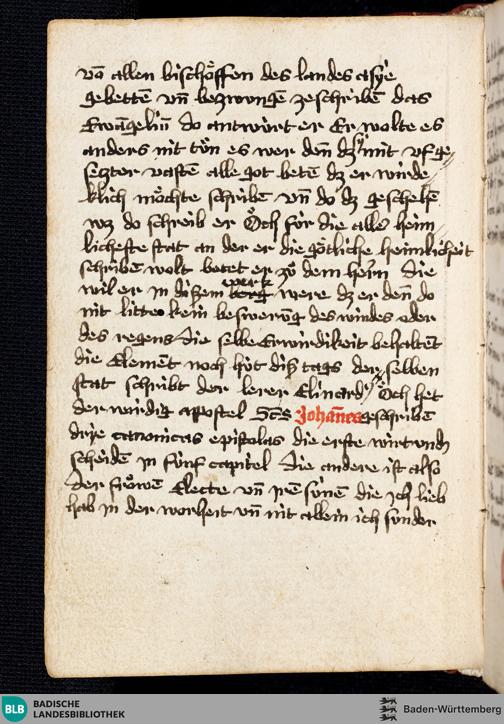 vō allen bischöffen des landes asye
gebettē vn̄ bezwungē zeschribē das
Ewāgeliū do antwürt er Er wolte es
anders nit tůn es wer den̄ dz sy mit vf ge
setzter vastē alle got betē dz er wirde
klich möchte schribē vn̄ do dz geschehē
wz do schreib er Och für die alle heim
lichesteste stat an der er die götliche heimlicheit
schribē wolt batet er zů dem herrn die
wil er in disem werk were dz er den̄ do
nit litte kein beswerūg des windes oder
des regens die selbe Erwirdikeit behaltēt
die Elemēt noch hüt diß tags der selben
stat schribt der lerer Elinardꝰ Och het
der wirdig apostel Scs Johānes geschribē
drye canonicas epistolas die erste wirt vnd
scheidē in fünf capitel Die andere ist also
Der fröwē Electe vn̄ irē sünē die ich lieb
hab in der worheit vn̄ nit allein ich sunder
BLB BADISCHE
LANDESBIBLIOTHEK
Baden-Württemberg